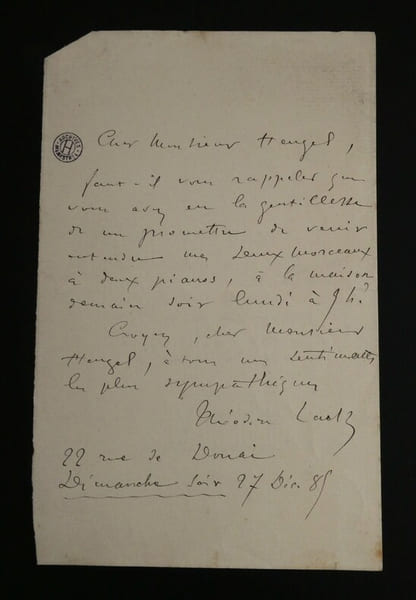 Cher Monsieur Heugel,
faut-il vous rappeler que
vous avez eu la gentillesse
de me promettre de venir
entendre mes deux morceaux
à deux pianos, à la maison
demain soir lundi à 9 h?
Croyez, cher Monsieur
Heugel, à tous mes sentiments
les plus sympathiques
Théodore Lack
22 rue de Douai
Dimanche soir 27 Déc. 85
ARCHIVES
H